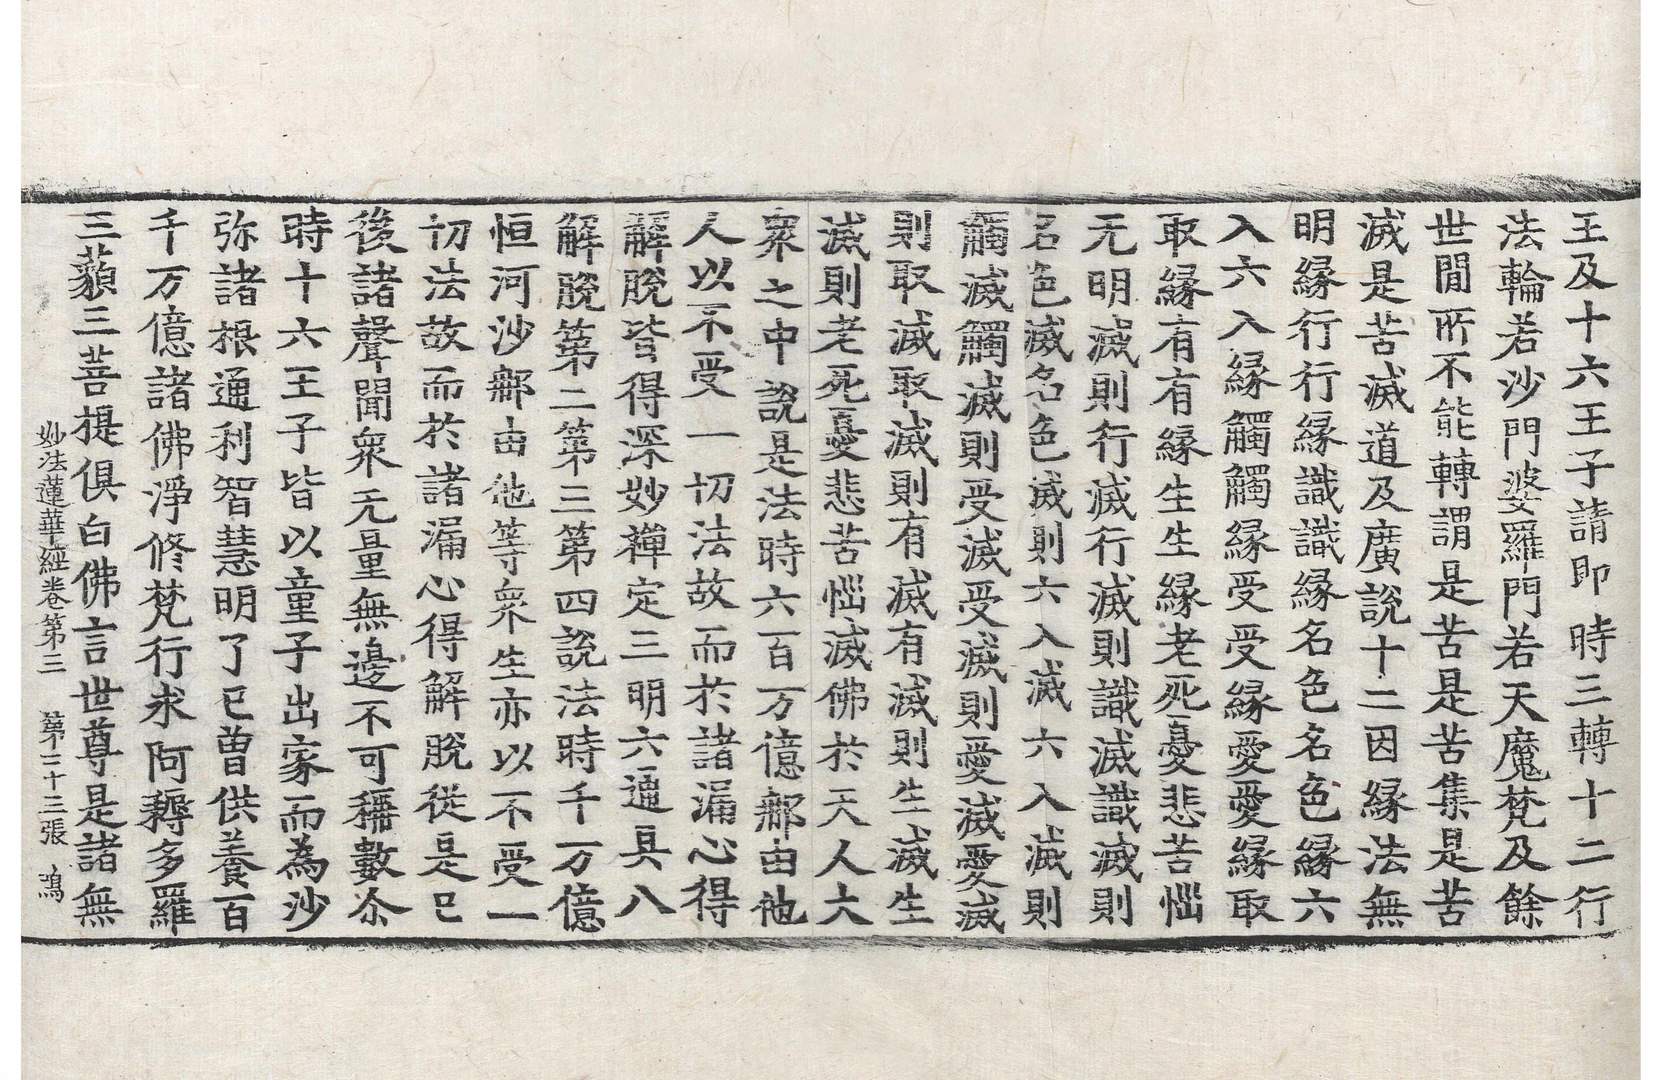 王及十六王子請即時三轉十二行
法輪若沙門婆羅門若天魔梵及餘
世閒所不能轉謂是苦是苦集是苦
滅是苦滅道及廣說十二因縁法無
明縁行行縁識識縁名色名色縁六
入六入縁觸觸縁受受縁愛愛縁取
取縁有有縁生生縁老死憂悲苦惱
无明滅則行滅行滅則識滅識滅則
名色滅名色滅則六入滅六入滅則
觸滅觸滅則受滅受滅則愛滅愛滅
則取滅取滅則有滅有滅則生滅生
滅則老死憂悲苦惱滅佛於天人大
衆之中說是法時六百万億那由他
人以不受一切法故而於諸漏心得
解脫皆得深妙禪定三明六通具八
解脫第二第三第四說法時千万億
恒河沙那由他等衆生亦以不受一
切法故而於諸漏心得解脫從是已
後諸聲聞衆无量無邊不可稱數尒
時十六王子皆以童子出家而為沙
弥諸根通利智慧明了已曾供養百
千万億諸佛淨修梵行求阿耨多羅
三藐三菩提俱白佛言世尊是諸無
妙法蓮華經卷第三 第二十三張 鴻